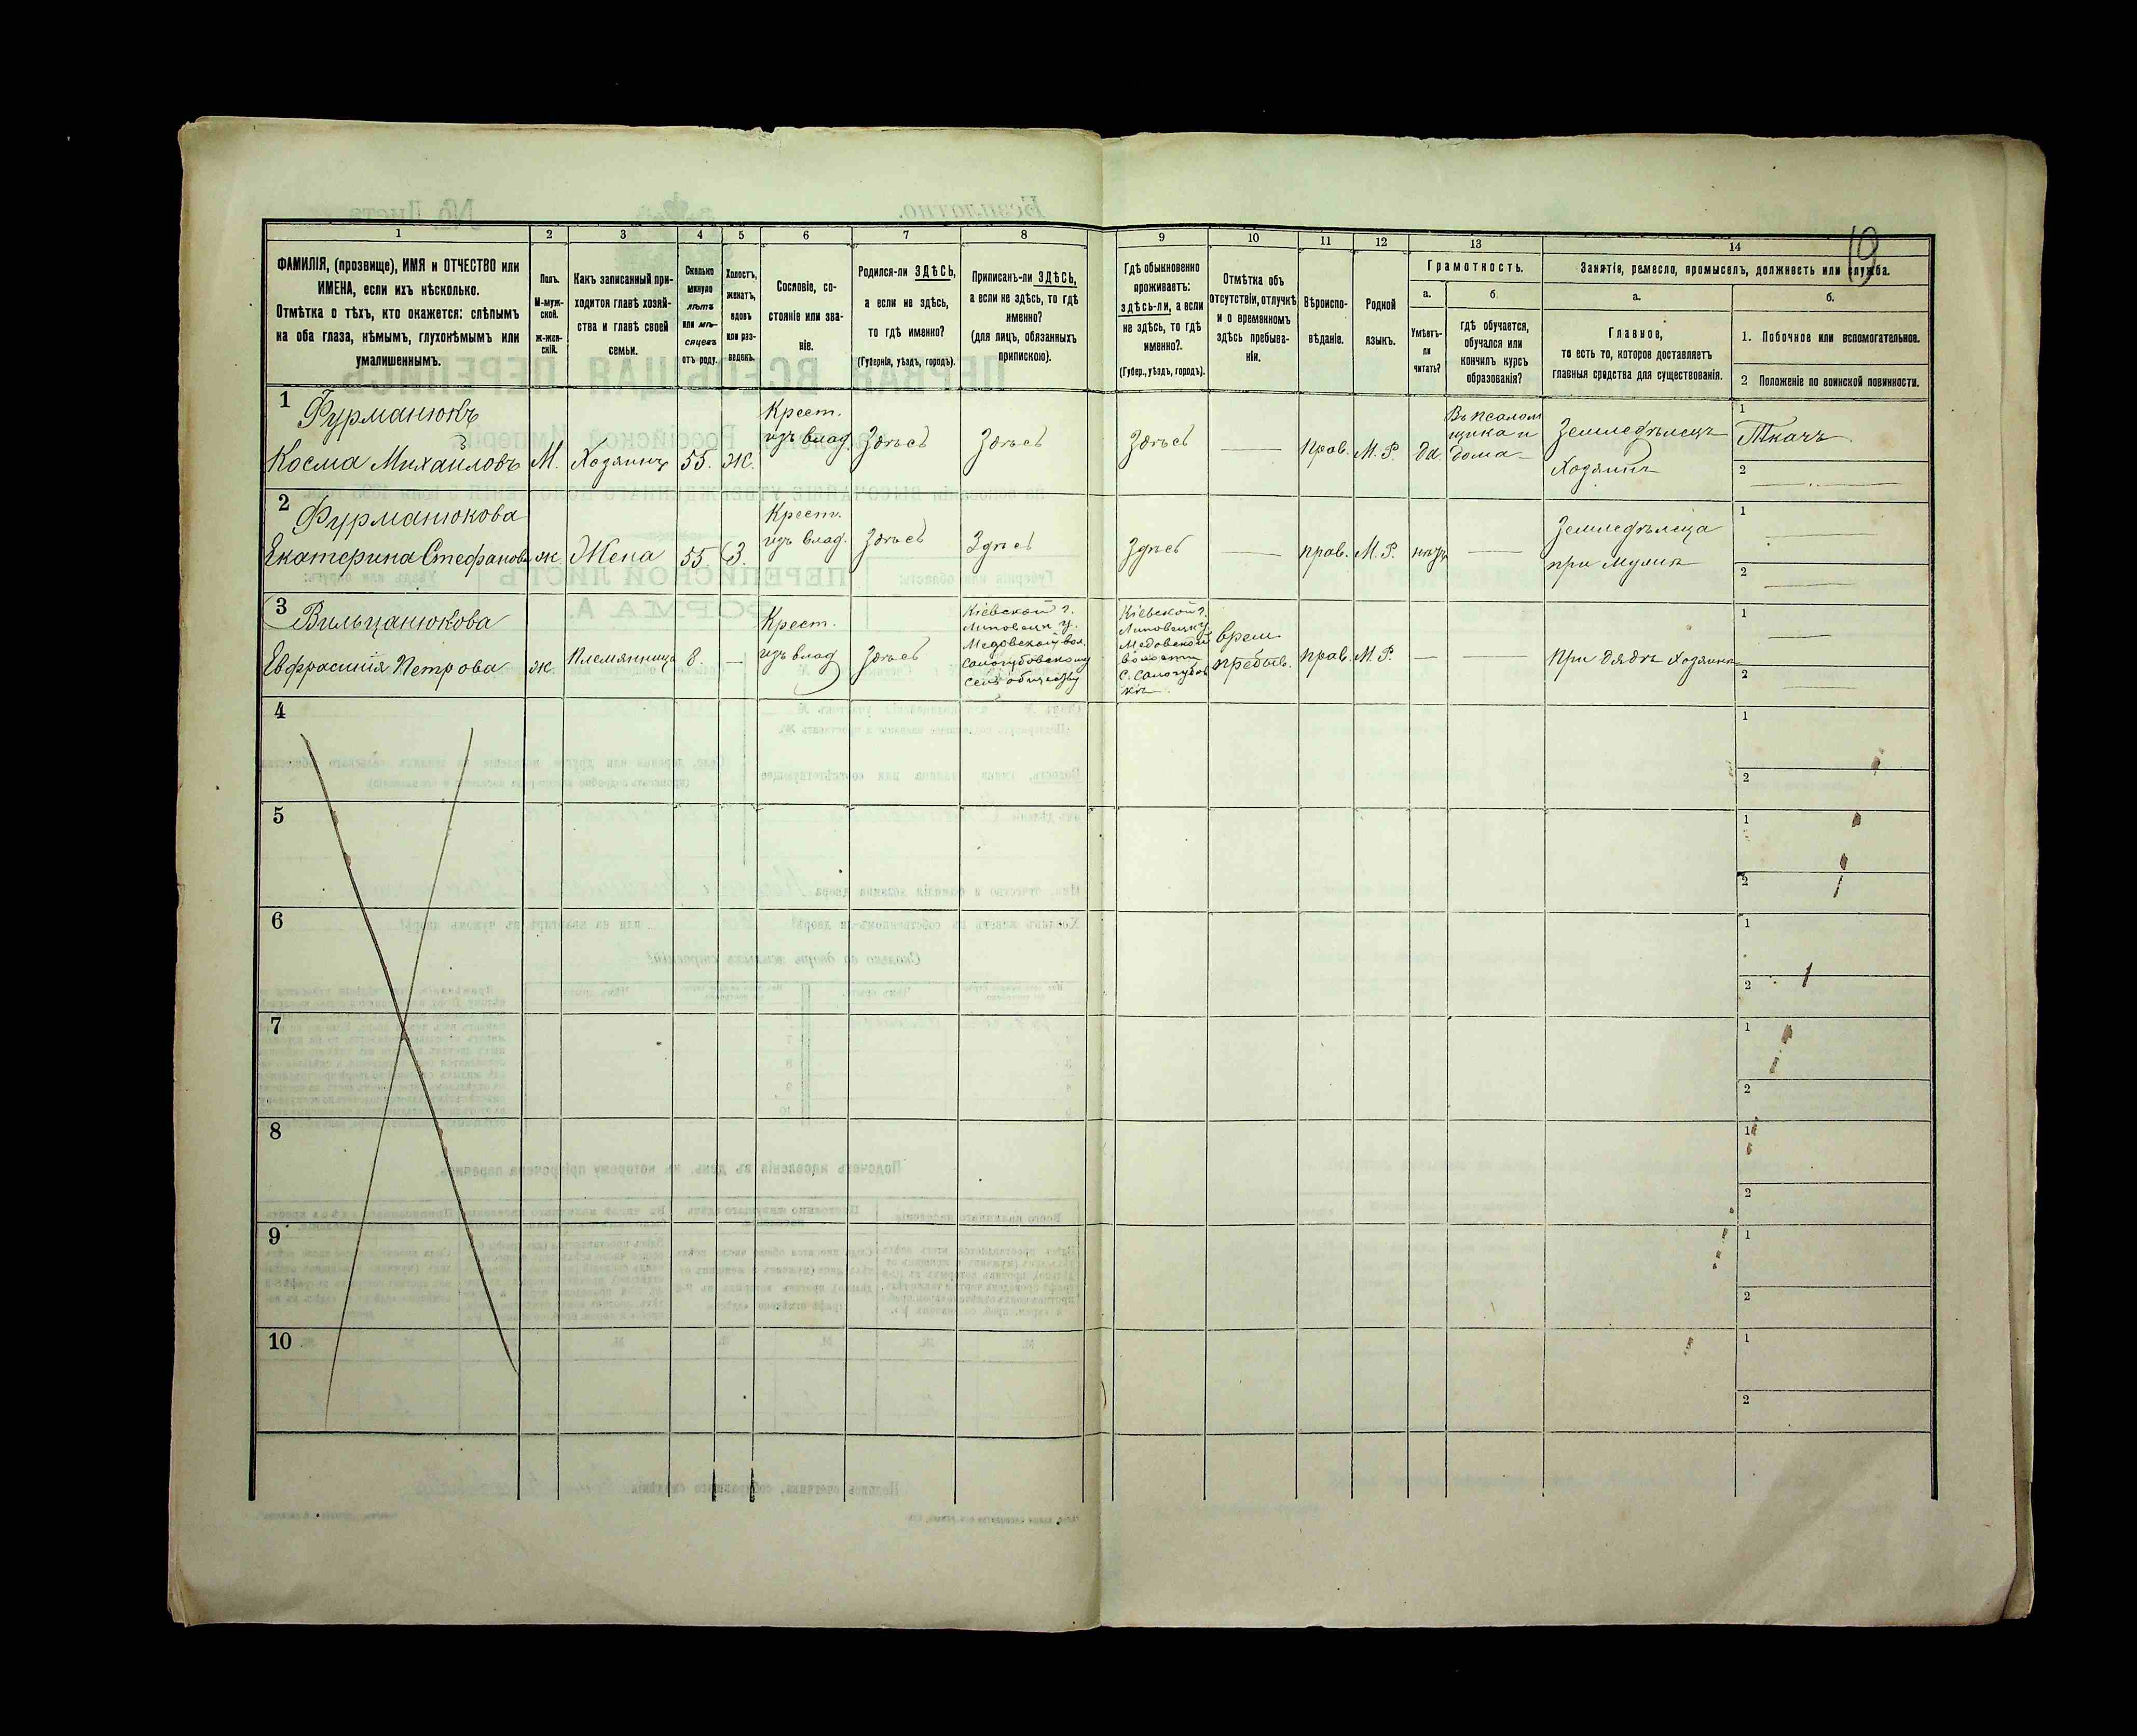 19
1 2 3 4 5 6 7 8 9 10 11 12 13 14
ФАМИЛІЯ, (прозвище), ИМЯ и ОТЧЕСТВО или
ИМЕНА, если ихъ нѣсколько.
Отмѣтка о тѣхъ, кто окажется: слѣпымъ
на оба глаза, нѣмымъ, глухонѣмымъ или
умалишеннымъ.
Полъ.
М-муж-
ской.
ж-жен-
скій.
Какъ записанный при-
ходится главѣ хозяй-
ства и главѣ своей
семьи.
Сколько
минуло
лѣтъ
или мѣ-
сяцевъ
отъ роду.
Холостъ,
женатъ,
вдовъ
или раз-
веденъ.
Сословіе, со-
стояніе или зва-
ніе.
Родился-ли ЗДѢСЬ,
а если не здѣсь,
то гдѣ именно?
(Губернія, уѣздъ, городъ).
Приписанъ-ли ЗДѢСЬ,
а если не здѣсь, то гдѣ
именно?
(для лицъ, обязанныхъ
припискою).
Гдѣ обыкновенно
проживаетъ:
здѣсь-ли, а если
не здѣсь, то гдѣ
именно?.
(Губер., уѣздъ, городъ).
Отмѣтка объ
отсутствіи, отлучкѣ
и о временномъ
здѣсь пребыва-
ніи.
Вѣроиспо-
вѣданіе.
Родной
языкъ.
Грамотность.
а.
Умѣетъ-
ли
читать?
б.
гдѣ обучается,
обучался или
кончилъ курсъ
образованія?
Занятіе, ремесло, промыселъ, должность или служба.
а.
Главное,
то есть то, которое доставляетъ
главныя средства для существованія.
б.
1. Побочное или вспомогательное.
2 Положеніе по воинской повинности.
1
Фурманюкъ
Косма Михайловъ
М.
Хозяинъ
55.
Ж.
Крест.
изъ влад.
Здѣсь
Здѣсь
Здѣсь
—
Прав.
М. Р.
да
Въ псалом
щика и
дома
Земледѣлецъ
Хозяинъ
1
Ткачъ
2 —
2
Фурманюкова
Екатерина Стефанова
ж.
Жена
55
З.
Крест.
изъ влад.
Здѣсь
Здѣсь
Здѣсь
—
прав.
М. Р.
нѣтъ
—
Земледѣлица
при мужѣ
1 —
2 —
3
Вильцанюкова
Евфрасинія Петрова
ж.
Племянница
8.
—
Крест.
изъ влад
Здѣсь
Кіевской г.
Липовецк у.
Медовской вол.
сел. обществу
Кіевской г.
Липовецк у.
Медовской
волости
с.
врем.
пребыв.
прав.
М. Р.
—
—
При дядѣ хозяинѣ
1 —
2 —
4
1
2
5
1
2
6
1
2
7
1
2
8
1
2
9
1
2
10
1
2